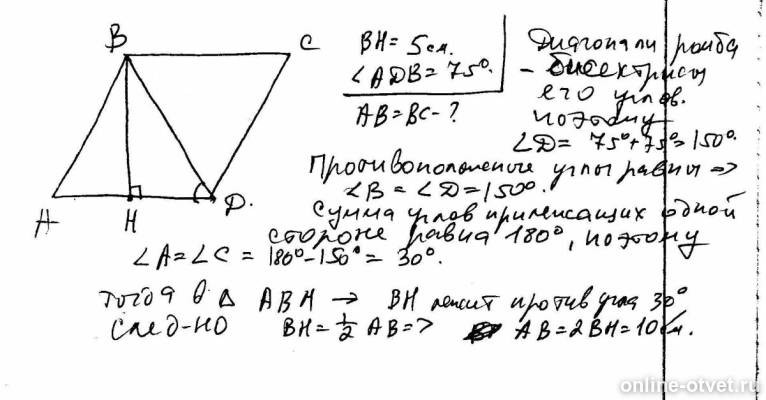 B C
A H D.
BH = 5 см.
∠ADB = 75°.
AB = BC - ?
Диагонали ромба
- биссектрисы
его углов.
поэтому
∠D = 75° + 75° = 150°.
Противоположные углы равны =>
∠B = ∠D = 150°.
Сумма углов прилежащих одной
стороне равна 180°, поэтому
∠A = ∠C = 180° - 150° = 30°.
тогда в △ ABH → BH лежит против угла 30°
след-но BH = 1/2 AB => AB = 2BH = 10 см.
online-otvet.ru